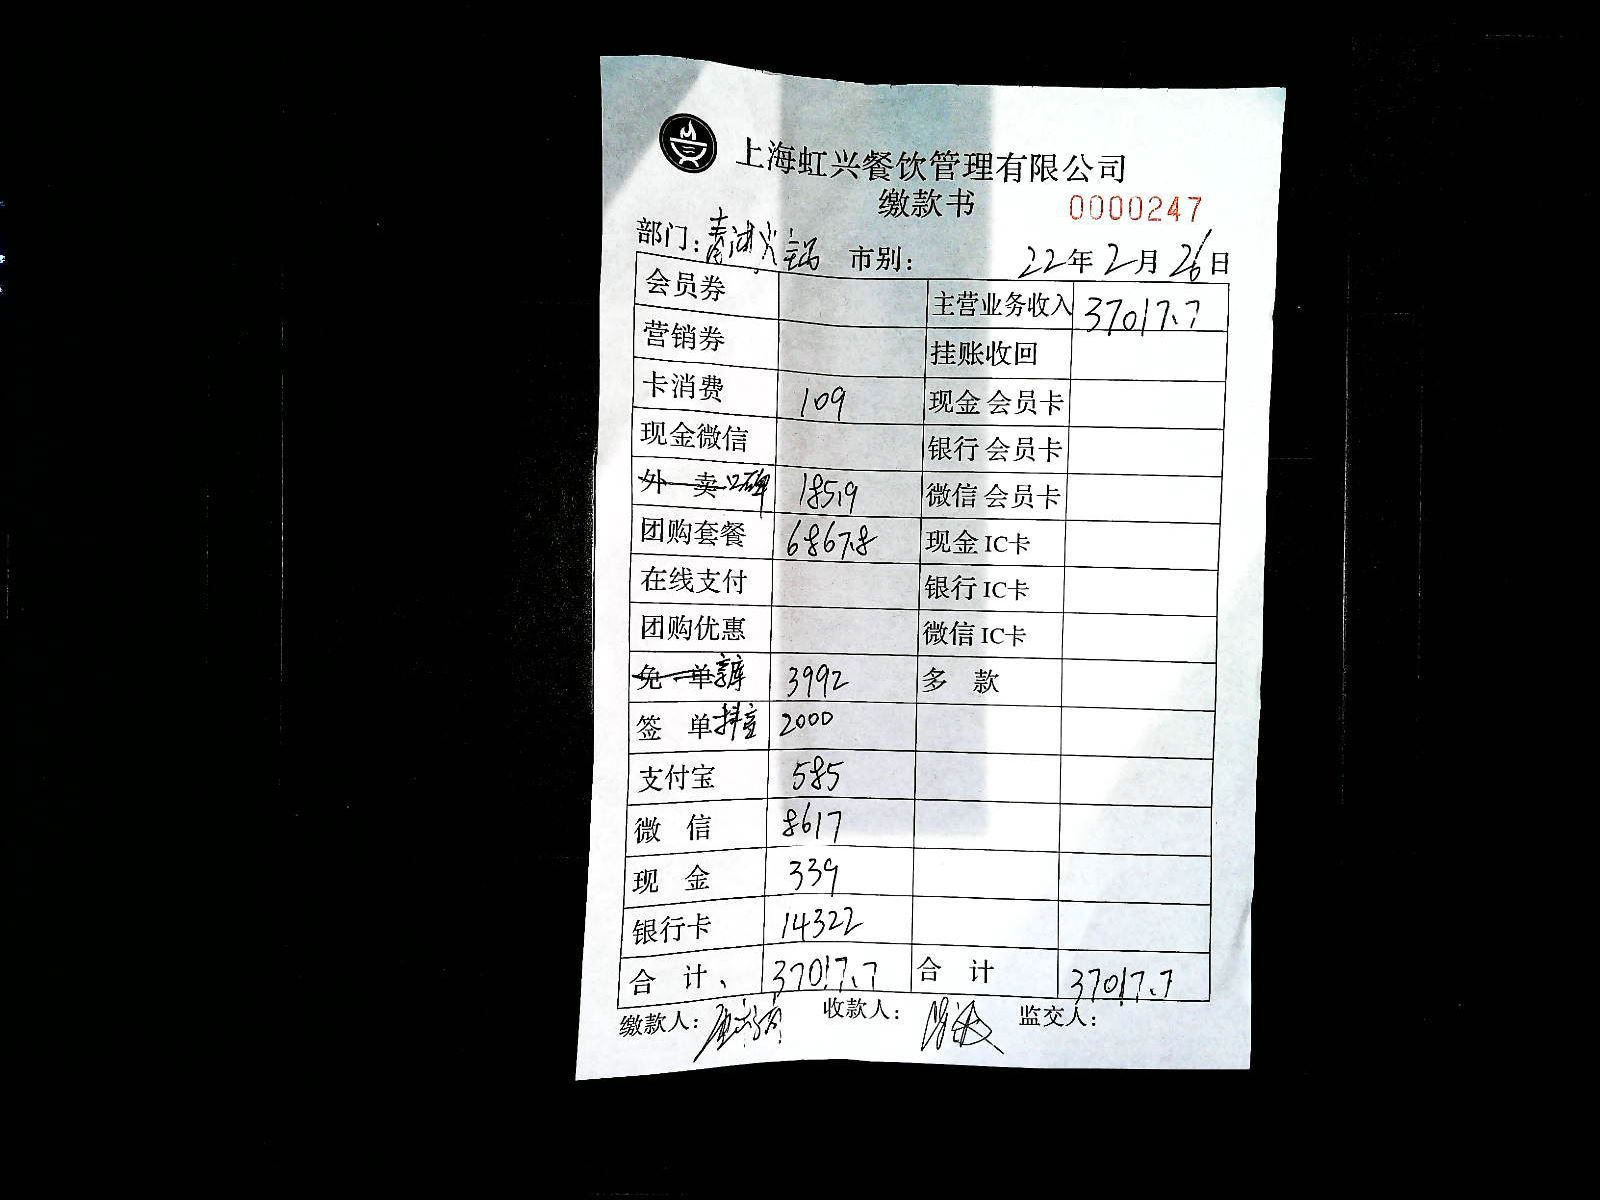 上海虹兴餐饮管理有限公司
缴款书 0000247
部门: 火锅 市别: 22年2月26日
会员券 主营业务收入 37017.7
营销券 挂账收回
卡消费 109 现金 会员卡
现金微信 银行 会员卡
外 卖 口碑 185.9 微信 会员卡
团购套餐 6867.8 现金 IC卡
在线支付 银行 IC卡
团购优惠 微信 IC卡
免 单 3992 多 款
签 单 抖音 2000
支付宝 585
微 信 8617
现 金 339
银行卡 14322
合 计、 37017.7 合 计 37017.7
缴款人: 收款人: 监交人: